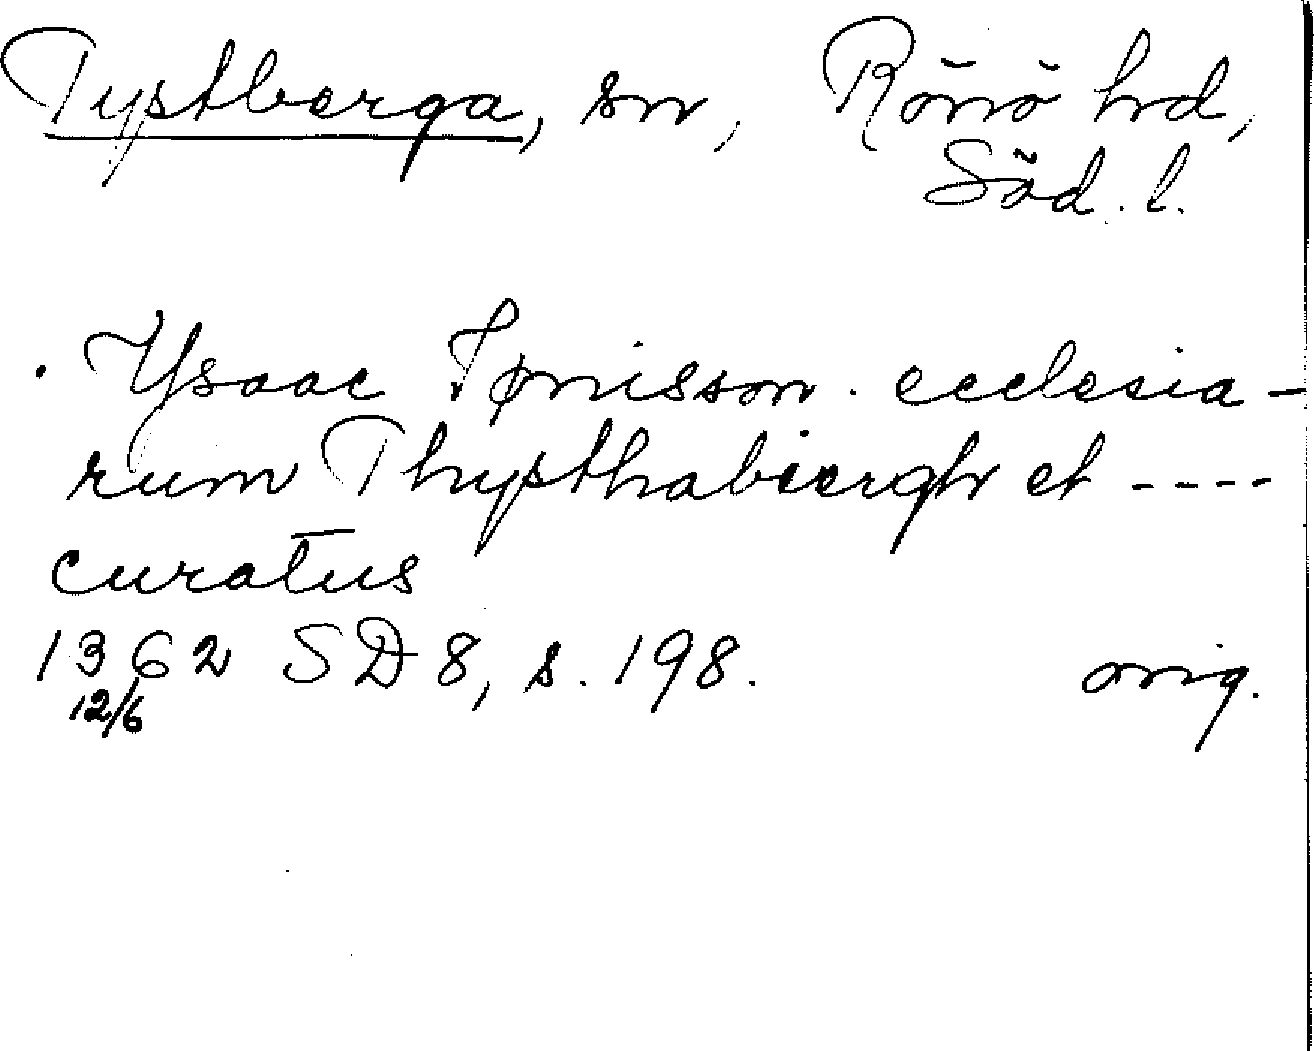 Tystberga, sn, Rönö hd,
Söd. l.
. Ysaac Tønisson . ecclesia-
rum Thysthabiergh et ----
curatus
1362 SD 8, s. 198. orig.
12/6